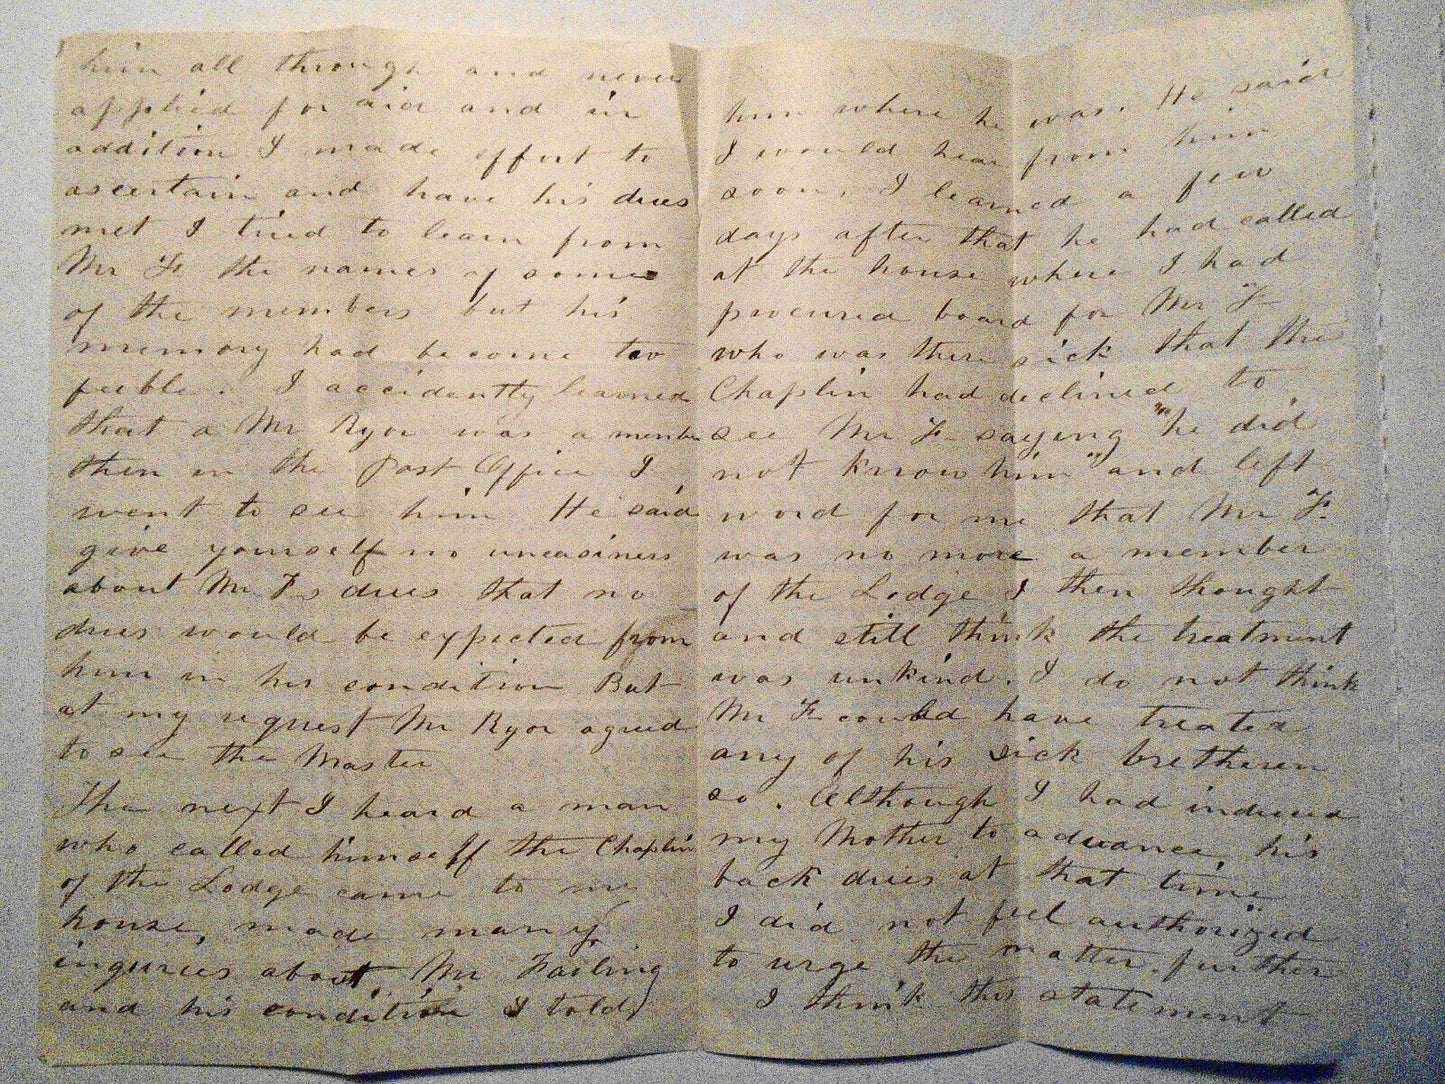 him all through and never
applied for aid and in
addition I made effort to
ascertain and have his dues
met I tried to learn from
Mr F. the names of some
of the members but his
memory had become too
feeble. I accidently learned
that a Mr Ryor was a member
then in the Post Office I
went to see him He said
give yourself no uneasiness
about Mr Fs dues that no
dues would be expected from
him in his condition But
at my request Mr Ryor agreed
to see the Master
The next I heard a man
who called himself the Chaplin
of the Lodge came to my
house, made many
inquries about Mr Failing
and his condition I told
him where he was. He said
I would hear from him
soon. I learned a few
days after that he had called
at the house where I had
procured board for Mr F
who was then sick that the
Chaplin had declined to
see Mr F saying "he did
not know him" and left
word for me that Mr F.
was no more a member
of the Lodge I then thought
and still think the treatment
was unkind. I do not think
Mr F could have treated
any of his sick bretheren
so. Although I had induced
my Mother to advance his
back dues at that time
I did not feel authorized
to urge the matter further
I think this statement